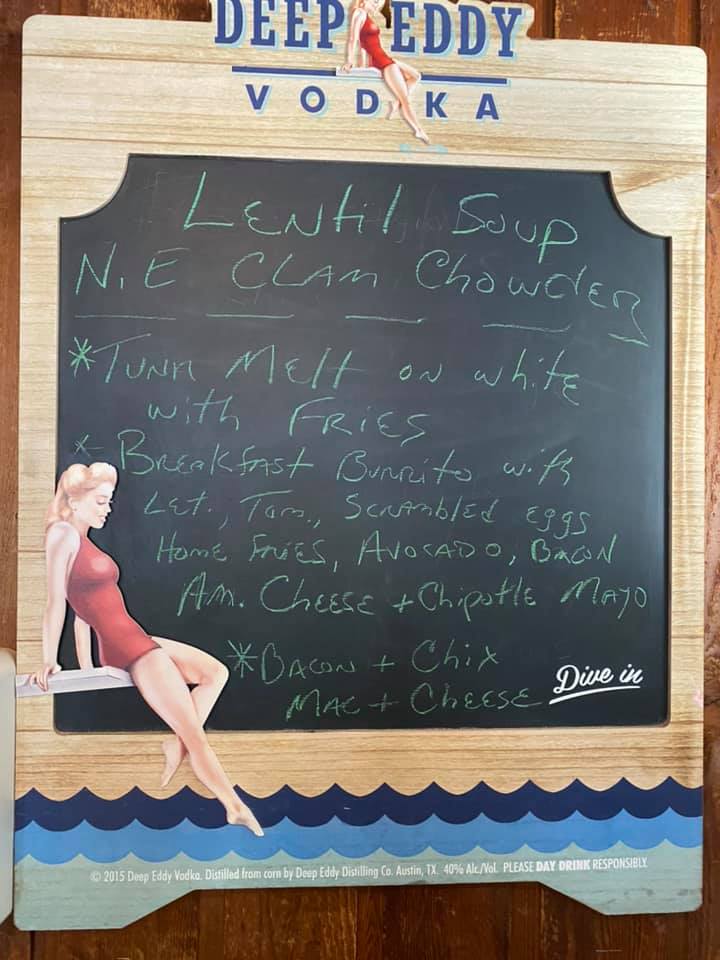 DEEP EDDY
VODKA
LENtil Soup
N.E CLAM ChowdER
*TUNA MElt ON whitE
with FRIES
* BREAkfAST BURRito with
LEt., Tom., SCRAMblEd Eggs
HomE FRIES, AVOCADO, BACON
AM. CHEESE + ChipotlE MAYO
*BACON + Chix
MAC + CHEESE
Dive in
© 2015 Deep Eddy Vodka. Distilled from corn by Deep Eddy Distilling Co. Austin, TX. 40% Alc./Vol. PLEASE DAY DRINK RESPONSIBLY.